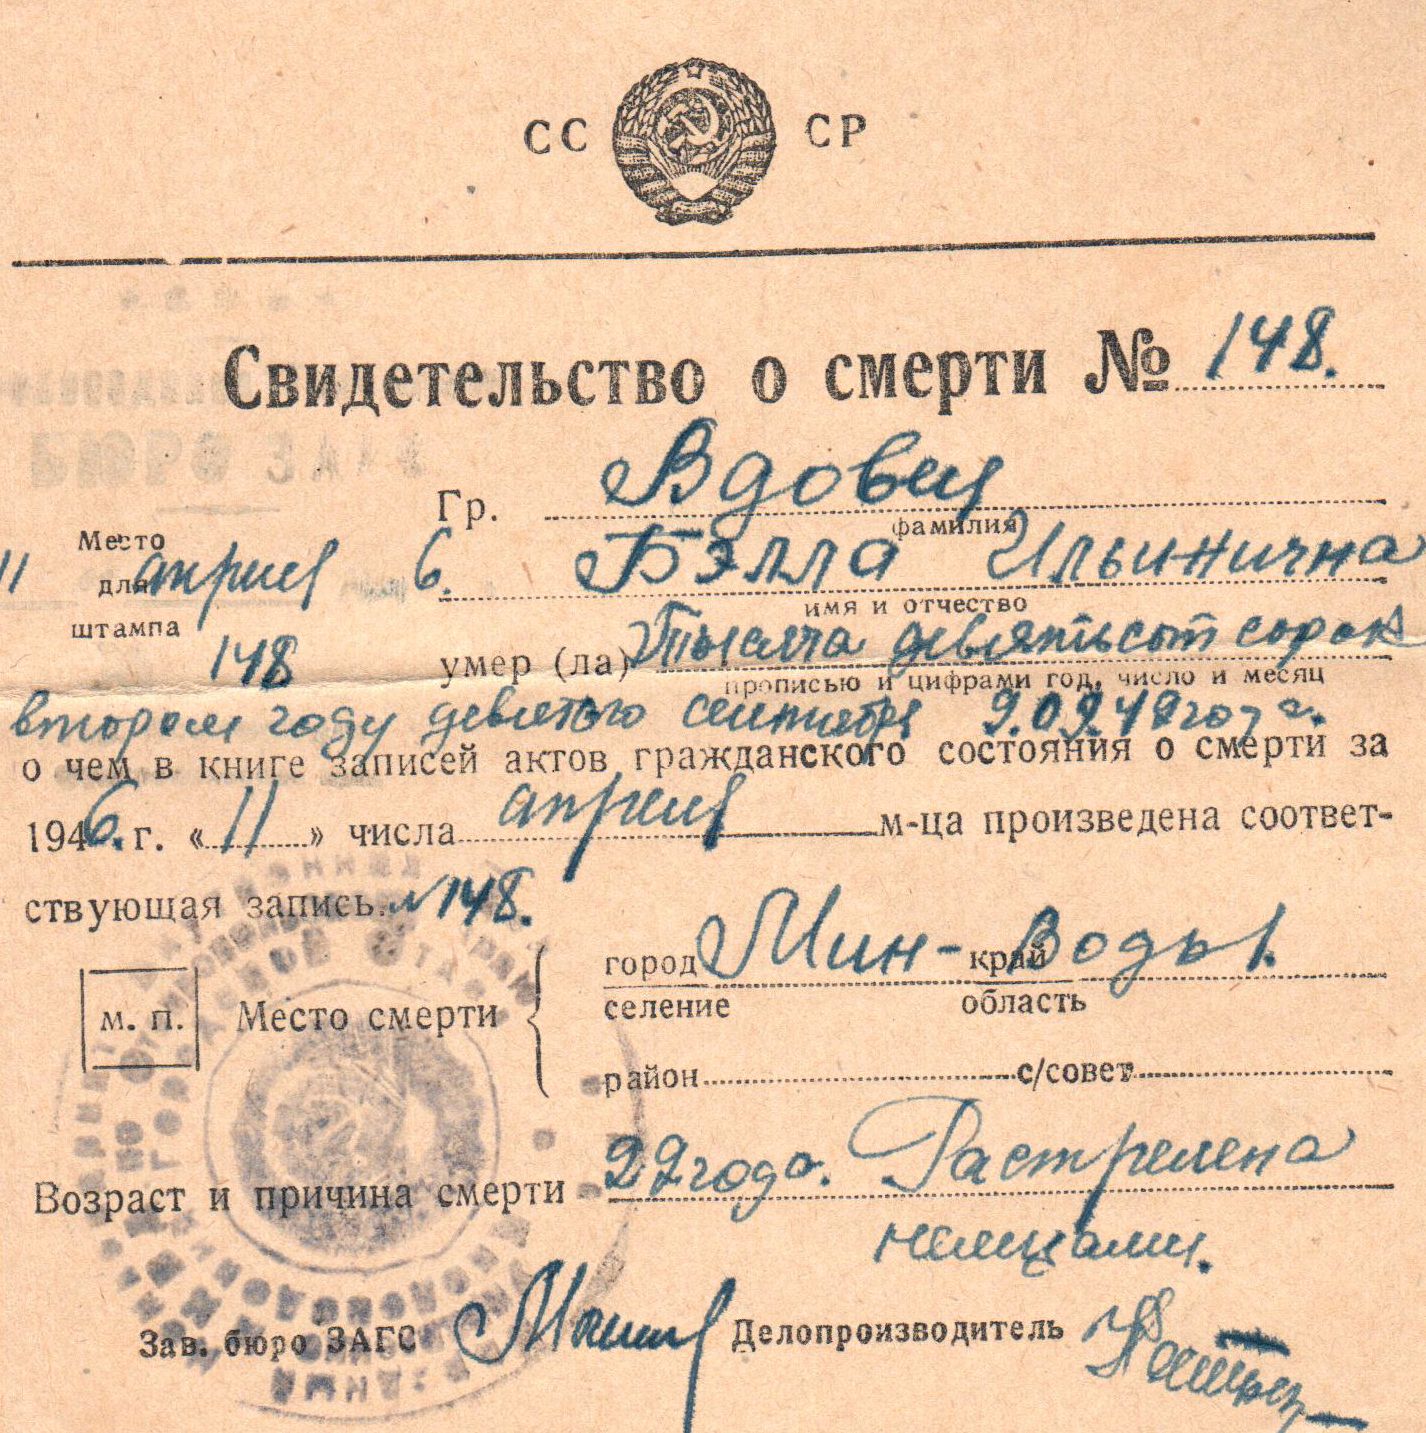 СС СР
Свидетельство о смерти № 148.
Гр. Вдовец
фамилия
Место для штампа
11 апреля 6.
148
Бэлла Ильинична
имя и отчество
умер (ла) Тысяча девятьсот сорок
прописью и цифрами год, число и месяц
втором году девятого сентября 9.09.42 года.
о чем в книге записей актов гражданского состояния о смерти за
1946. г. «11» числа апреля м-ца произведена соответ-
ствующая запись. №148.
м. п.
Место смерти
город Мин-Воды. край
селение область
район с/совет
Возраст и причина смерти 29 года. Растрелена
немцами.
Зав. бюро ЗАГС Делопроизводитель